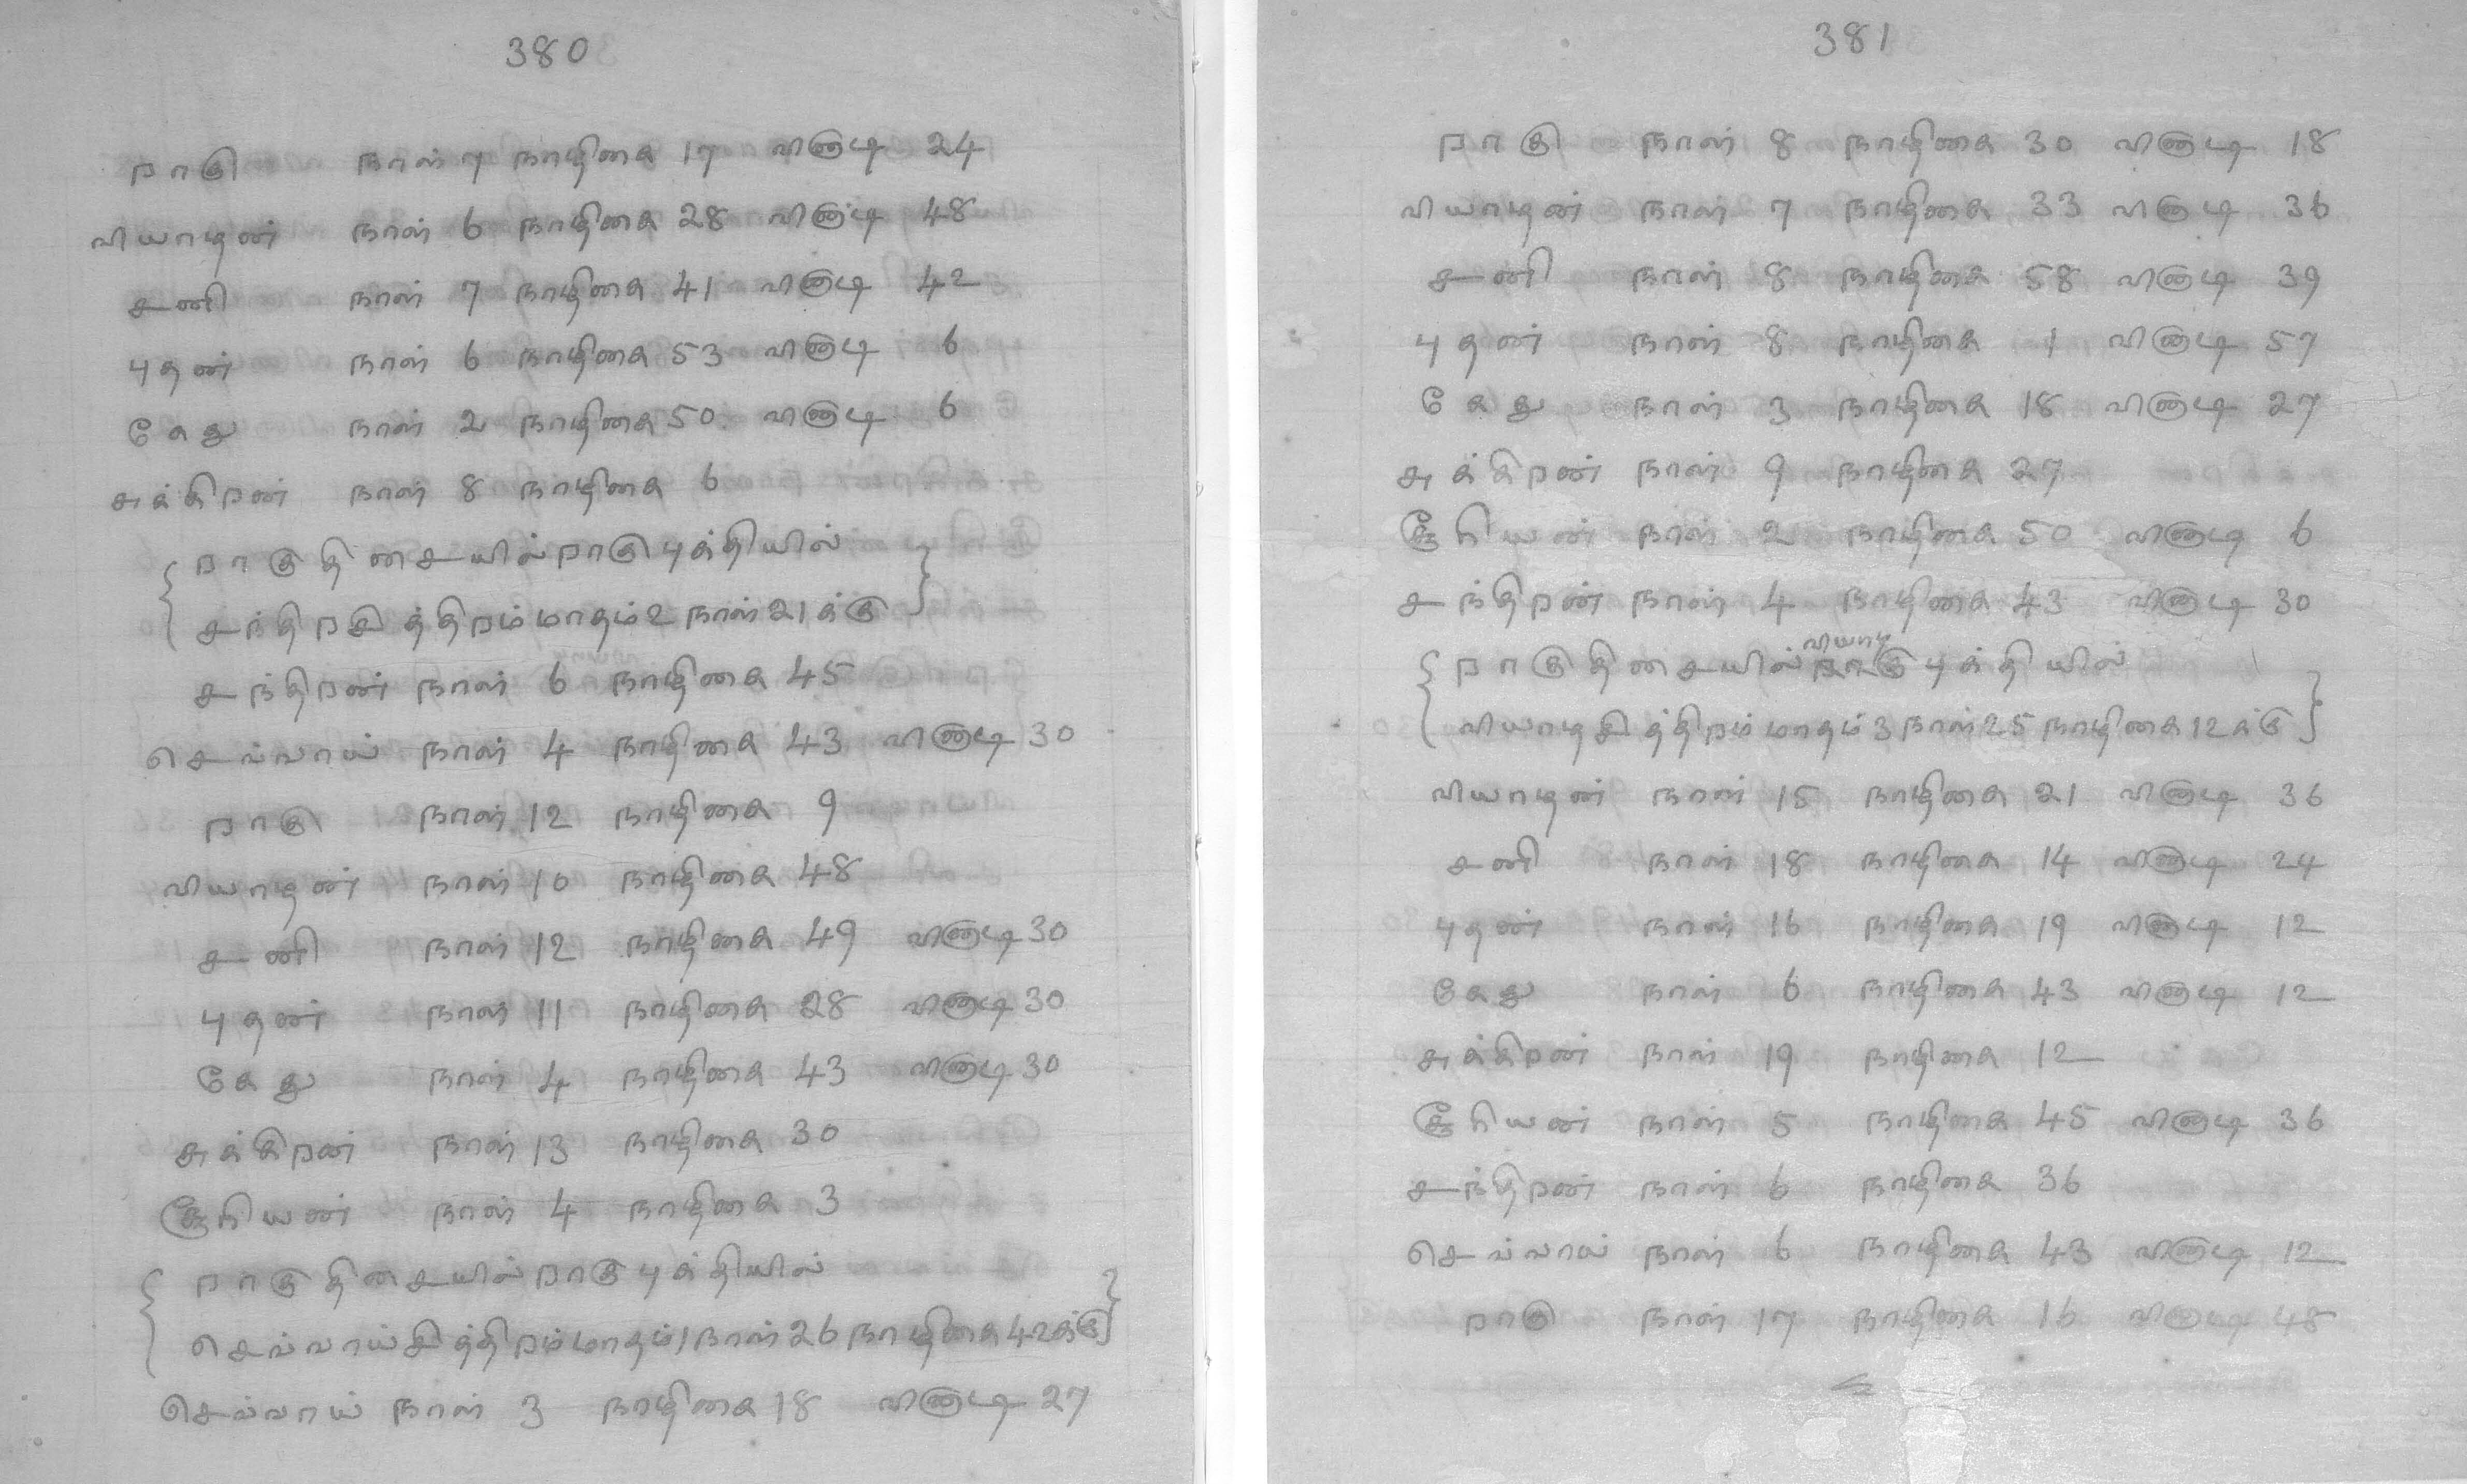 380
ராகு நாள் 7 நாழிகை 17 வினாடி 24
வியாழன் நாள் 6 நாழிகை 28 வினாடி 48
சனி நாள் 7 நாழிகை 41 வினாடி 42
புதன் நாள் 6 நாழிகை 53 வினாடி 6
கேது நாள் 2 நாழிகை 50 வினாடி 6
சுக்கிரன் நாள் 8 நாழிகை 6
{ ராகு திசையில் ராகு புக்தியில் }
சந்திர சித்திரம் மாதம் 2 நாள் 21க்கு
சந்திரன் நாள் 6 நாழிகை 45
செவ்வாய் நாள் 4 நாழிகை 43 வினாடி 30
ராகு நாள் 12 நாழிகை 9
வியாழன் நாள் 10 நாழிகை 48
சனி நாள் 12 நாழிகை 49 வினாடி 30
புதன் நாள் 11 நாழிகை 28 வினாடி 30
கேது நாள் 4 நாழிகை 43 வினாடி 30
சுக்கிரன் நாள் 13 நாழிகை 30
சூரியன் நாள் 4 நாழிகை 3
{ ராகு திசையில் ராகு புக்தியில் }
செவ்வாய் சித்திரம் மாதம் 1 நாள் 26 நாழிகை 42க்கு
செவ்வாய் நாள் 3 நாழிகை 18 வினாடி 27
381
ராகு நாள் 8 நாழிகை 30 வினாடி 18
வியாழன் நாள் 7 நாழிகை 33 வினாடி 36
சனி நாள் 8 நாழிகை 58 வினாடி 39
புதன் நாள் 8 நாழிகை 1 வினாடி 57
கேது நாள் 3 நாழிகை 18 வினாடி 27
சுக்கிரன் நாள் 9 நாழிகை 27
சூரியன் நாள் 2 நாழிகை 50 வினாடி 6
சந்திரன் நாள் 4 நாழிகை 43 வினாடி 30
{ ராகு திசையில் வியாழ புக்தியில் }
வியாழ சித்திரம் மாதம் 3 நாள் 25 நாழிகை 12க்கு
வியாழன் நாள் 15 நாழிகை 21 வினாடி 36
சனி நாள் 18 நாழிகை 14 வினாடி 24
புதன் நாள் 16 நாழிகை 19 வினாடி 12
கேது நாள் 6 நாழிகை 43 வினாடி 12
சுக்கிரன் நாள் 19 நாழிகை 12
சூரியன் நாள் 5 நாழிகை 45 வினாடி 36
சந்திரன் நாள் 6 நாழிகை 36
செவ்வாய் நாள் 6 நாழிகை 43 வினாடி 12
ராகு நாள் 17 நாழிகை 16 வினாடி 48